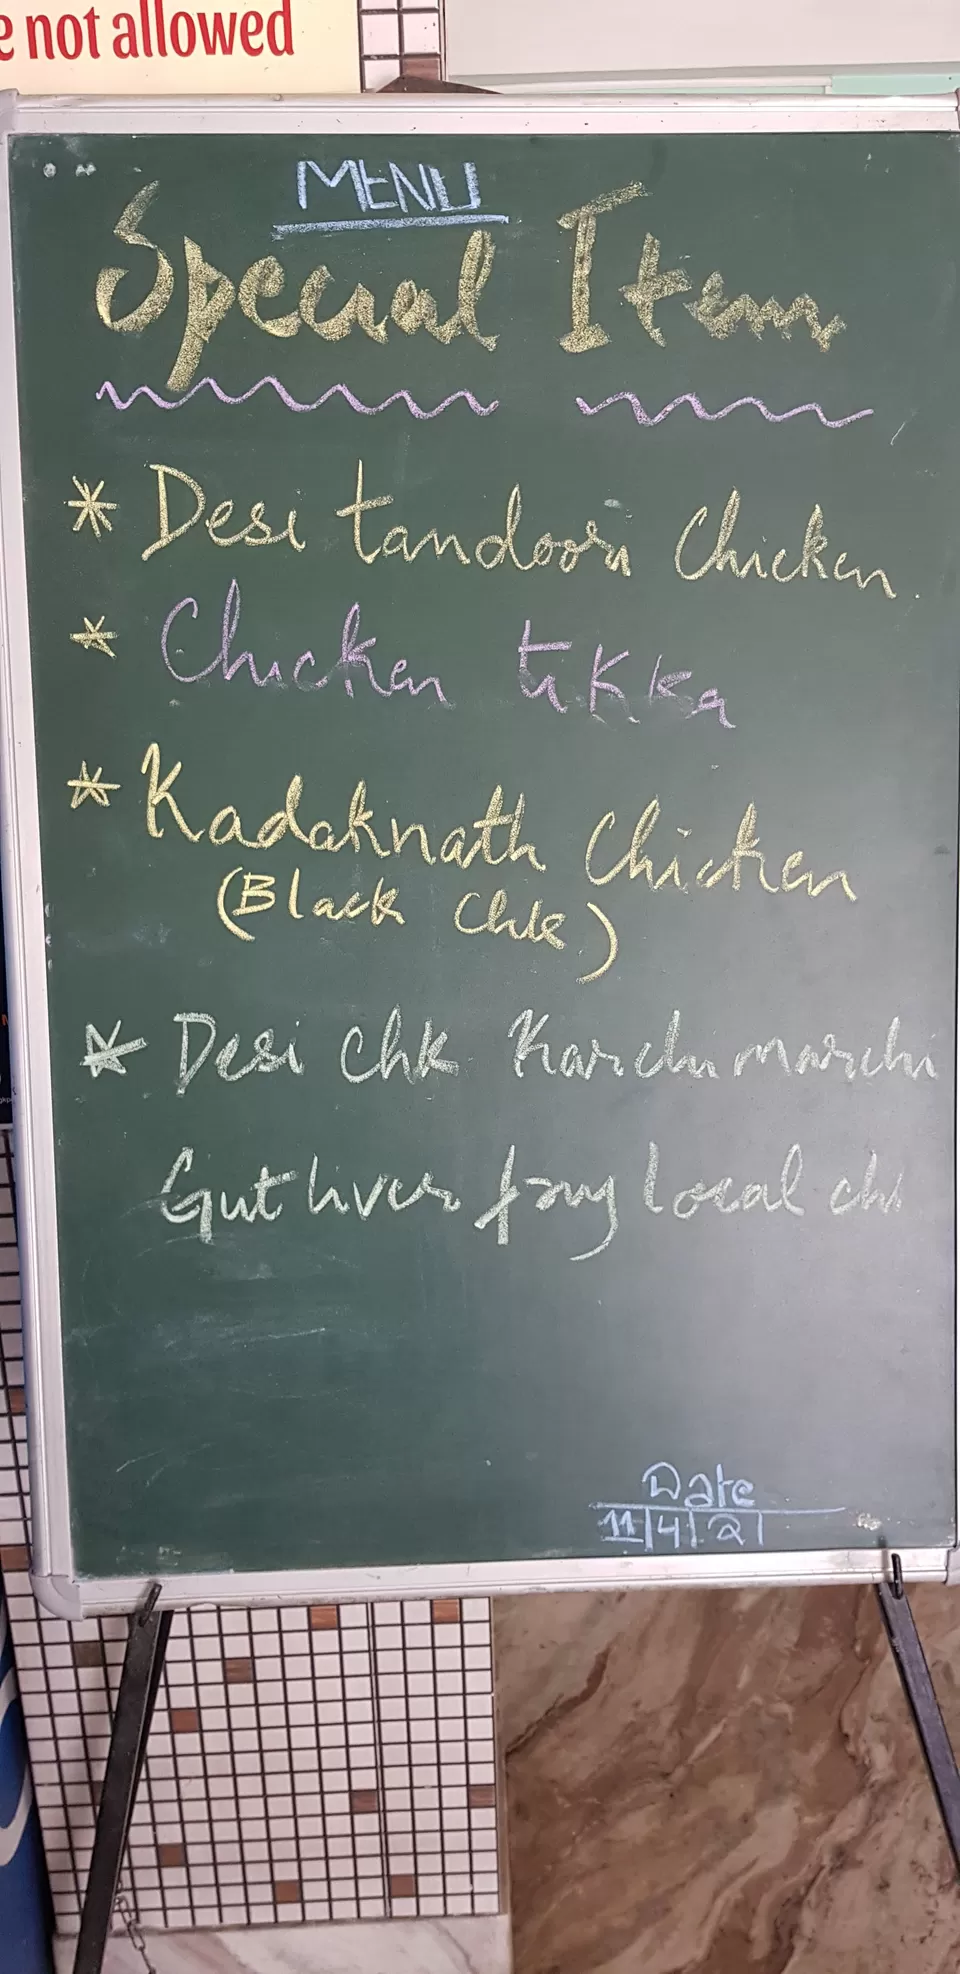 e not allowed
MENU
Special Item
* Desi tandoori Chicken.
* Chicken tikka
* Kadaknath Chicken
(Black Chk)
* Desi Chk Karchi marchi
Gut liver fry local chk
Date
11/4/21